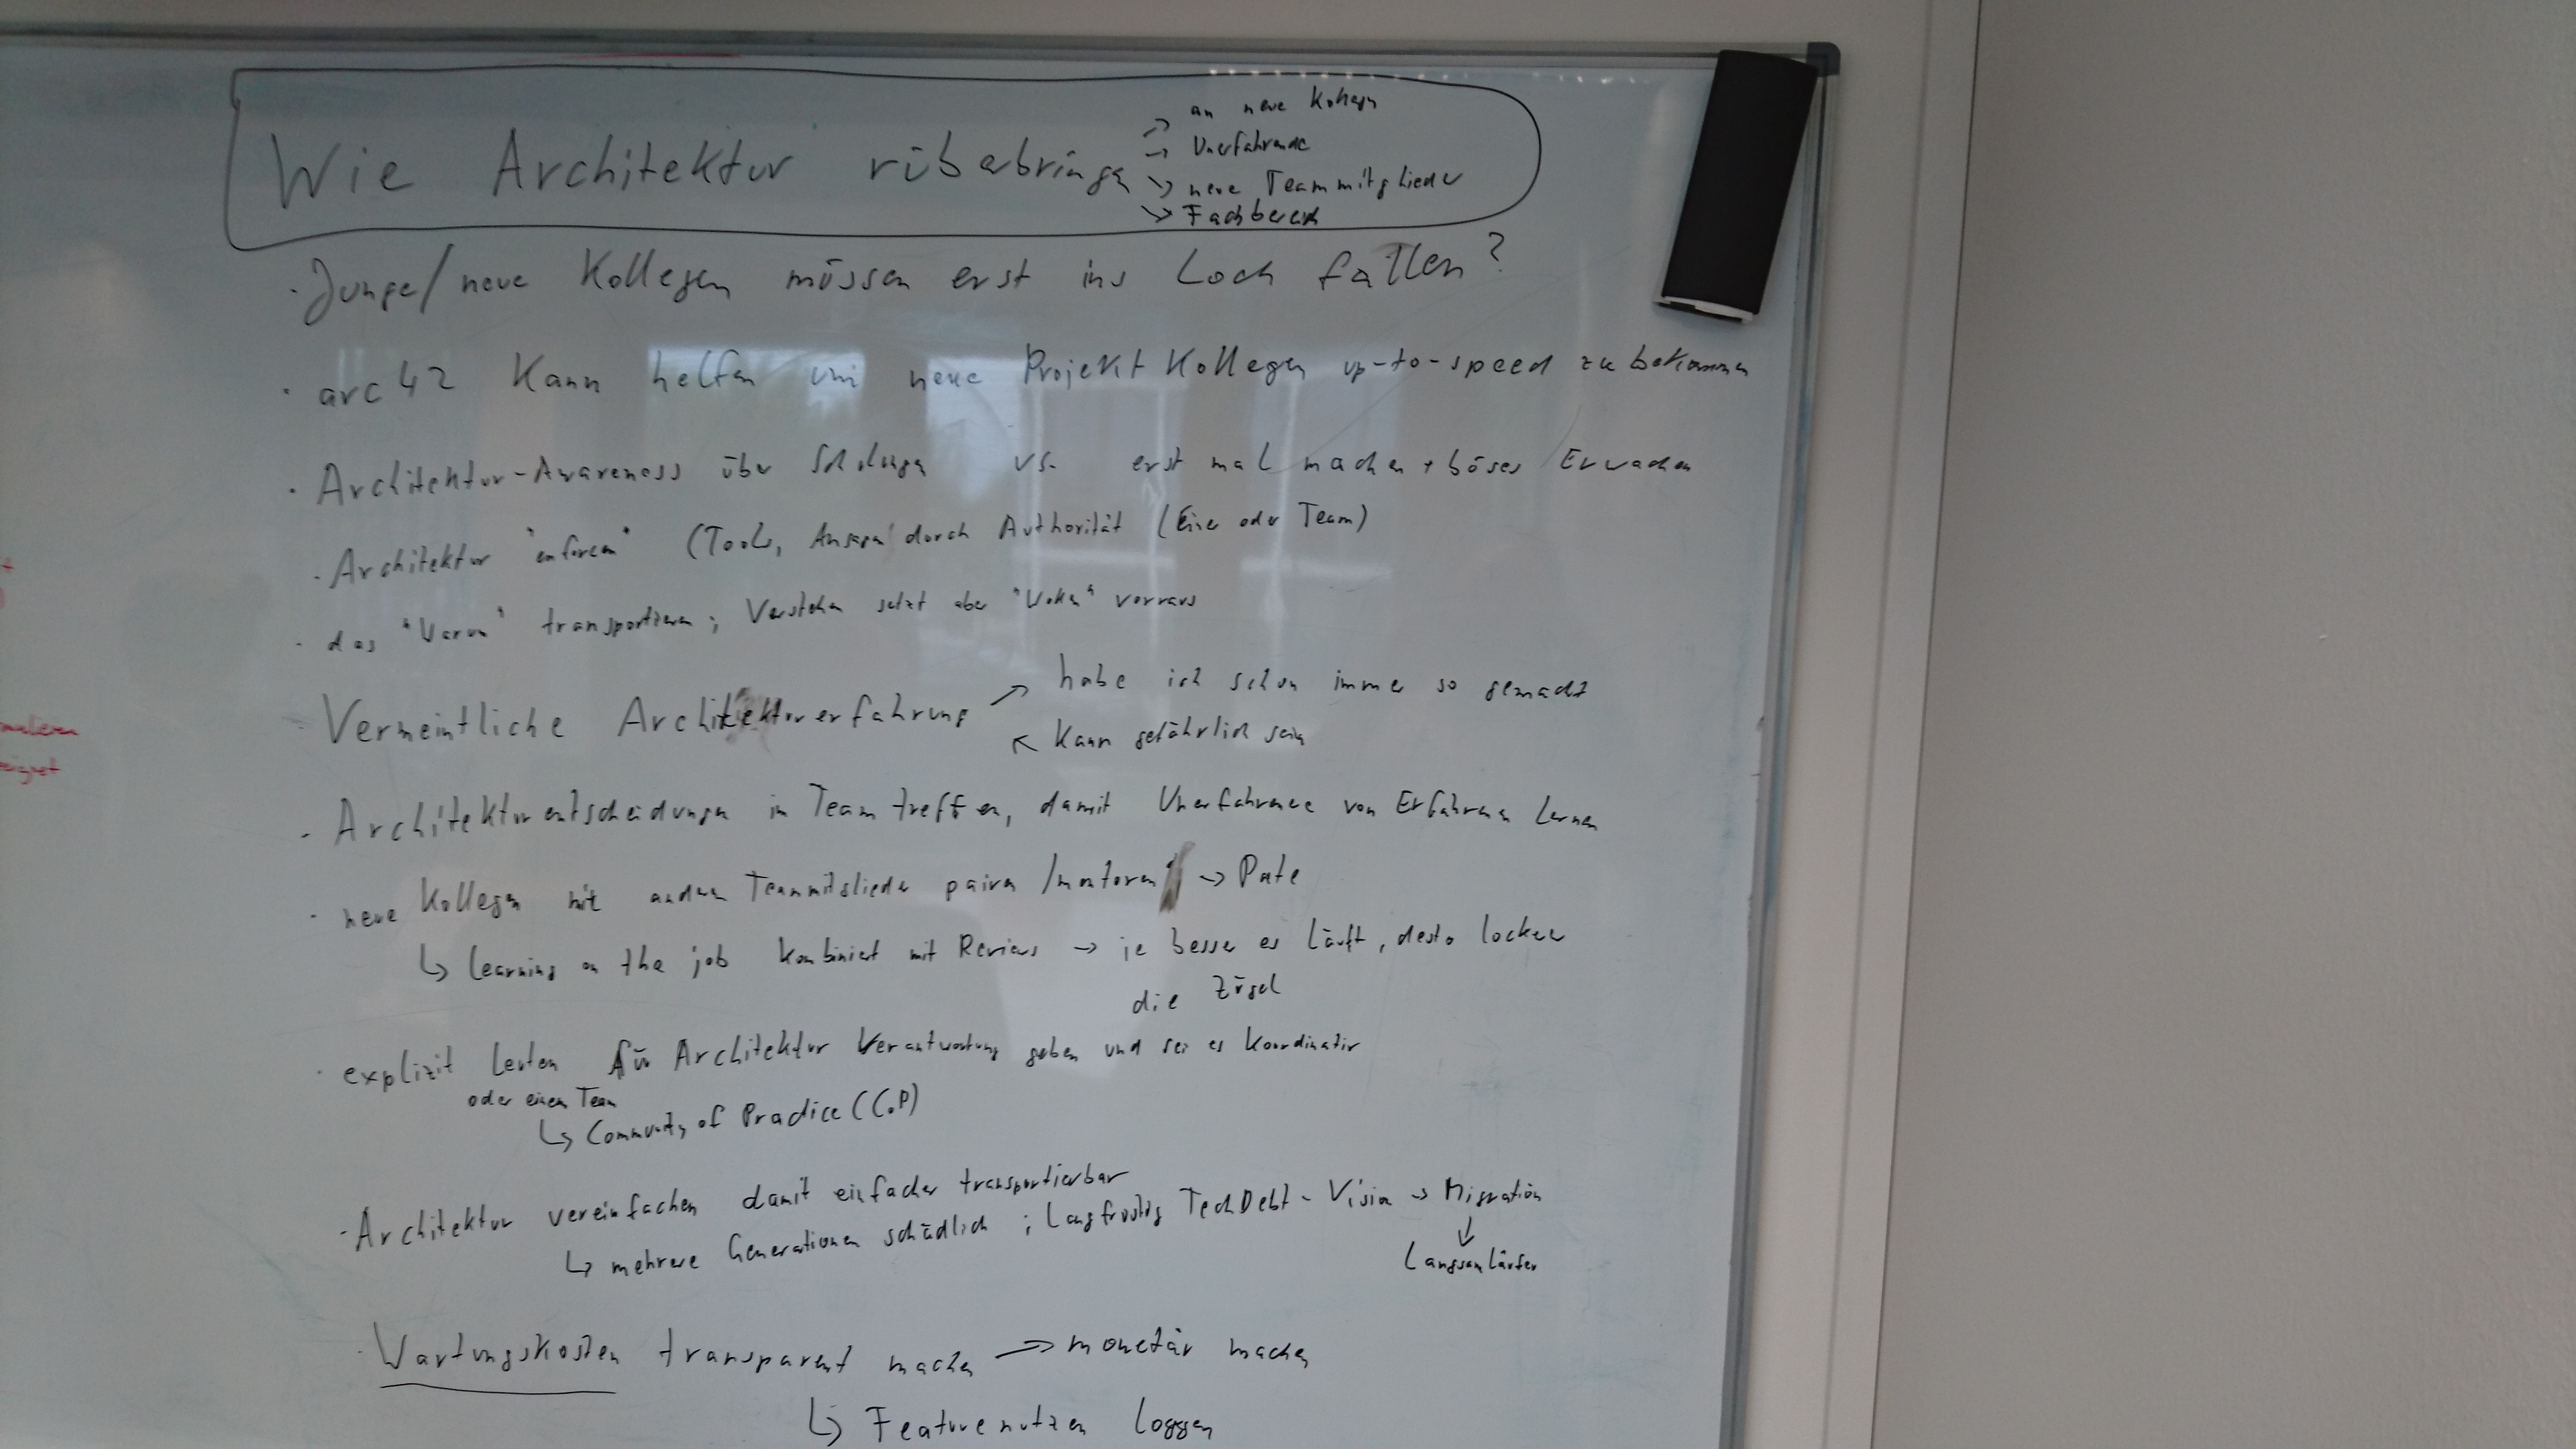 Wie Architektur rüberbringen
→ an neue Kollegen
→ Unerfahrende
→ neue Teammitglieder
→ Fachbereich
· Junge/neue Kollegen müssen erst ins Loch fallen?
· arc42 kann helfen um neue Projekt Kollegen up-to-speed zu bekommen
· Architektur-Awareness über Schulungen vs. erst mal machen + böses Erwachen
· Architektur "enforcen" (Tools, durch Authorität (Einer oder Team)
· das "Warum" transportieren; Verstehen setzt aber "Wollen" vorraus
· Vermeintliche Architekturerfahrung → habe ich schon immer so gemacht
↖ kann gefährlich sein
· Architekturentscheidungen im Team treffen, damit Unerfahrenee von Erfahrenen lernen
· neue Kollegen mit anderen Teammitglieder pairen /mentoren → Pate
↳ learning on the job kombiniert mit Reviews → je besser es läuft, desto locker
die Zügel
· explizit Leuten für Architektur Verantwortung geben und sei es koordinativ
oder einem Team
↳ Community of Practice (CoP)
· Architektur vereinfachen damit einfacher transportierbar
↳ mehrere Generationen schädlich ; Langfristig TechDebt - Vision → Migration
↓
Langsamläufer
· Wartungskosten transparent machen → monetär machen
↳ Featurenutzen loggen
malieren
eignet